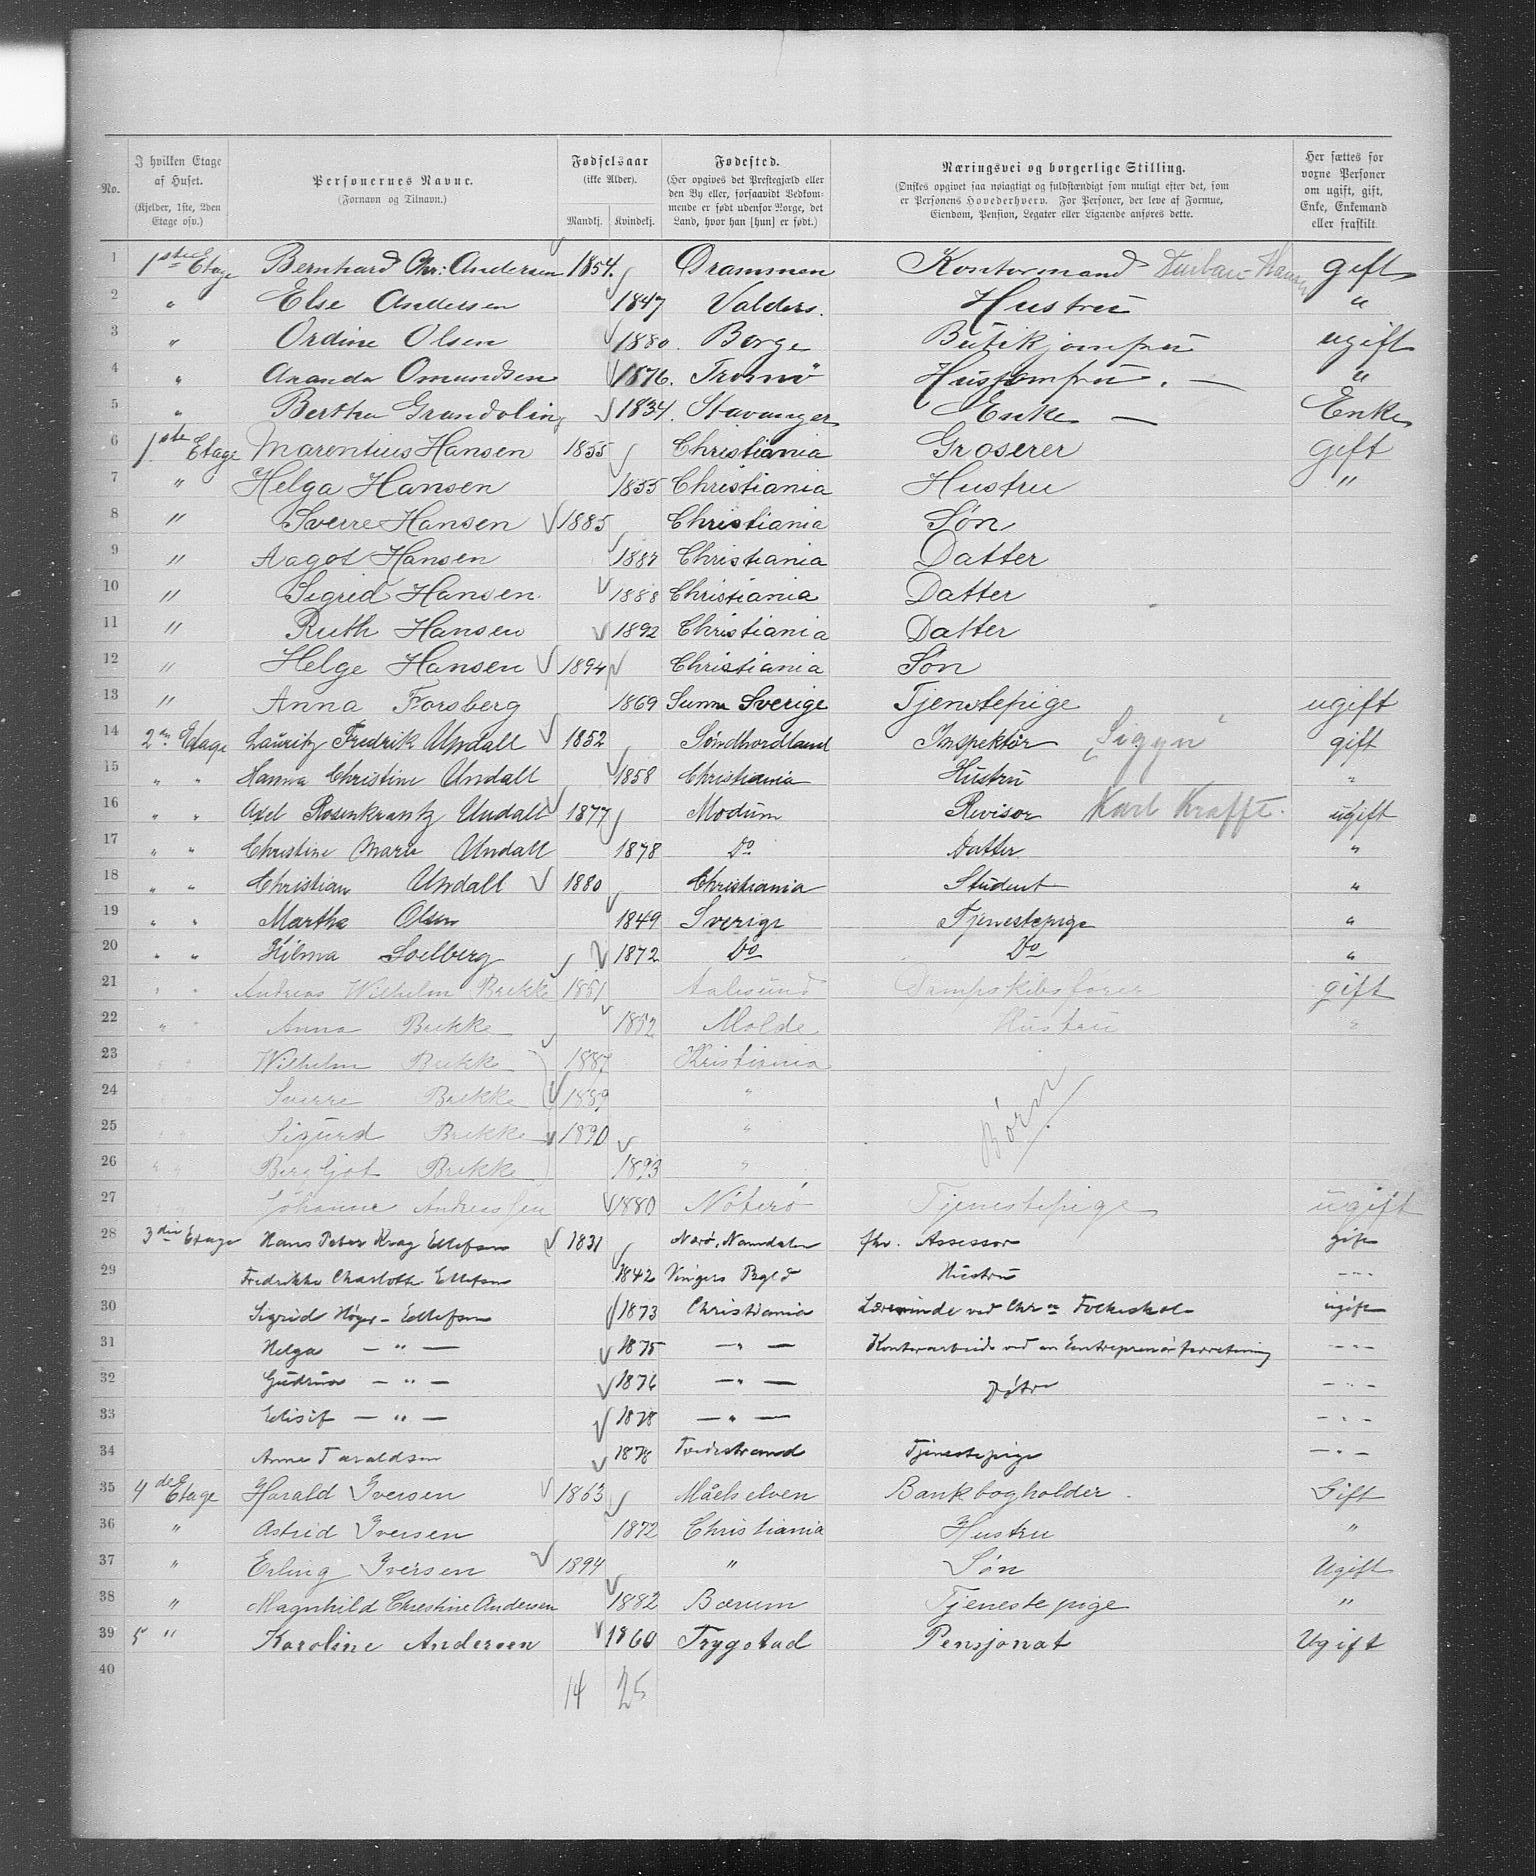 No.
I hvilken Etage af Huset. (Kjelder, 1ste, 2den Etage osv.)
Personernes Navne. (Fornavn og Tilnavn.)
Fødselsaar (ikke Alder). Mandkj. Kvindekj.
Fødested. (Her opgives det Prestegjæld eller den By eller, forsaavidt Vedkommende er født udenfor Norge, det Land, hvor han [hun] er født.)
Næringsvei og borgerlige Stilling. (Ønskes opgivet saa nøiagtigt og fuldstændigt som muligt efter det, som er Personens Hovederhverv. For Personer, der leve af Formue, Eiendom, Pension, Legater eller Ligaende anføres dette.)
Her sættes for voxne Personer om ugift, gift, Enke, Enkemand eller fraskilt.
1 1ste Etage Bernhard Chr: Andersen 1854. Drammen Kontormand gift
2 " Else Andersen 1847 Valders. Hustru "
3 " Ordine Olsen 1880. Borge Butikjomfru ugift
4 " Ananda Omundsen 1876. Tromø Husjomfru. — "
5 " Bertha 1834. Stavanger Enke — Enke
6 1ste Etage Marentius Hansen 1855 Christiania Groserer gift
7 " Helga Hansen 1855 Christiania Hustru "
8 " Sverre Hansen 1885 Christiania Søn
9 " Aagot Hansen 1887 Christiania Datter
10 " Sigrid Hansen 1888 Christiania Datter
11 " Ruth Hansen 1892 Christiania Datter
12 " Helge Hansen 1894 Christiania Søn
13 " Anna Forsberg 1869 Sunne Sverige Tjenstepige ugift
14 2den Etage Lauritz Fredrik Undall 1852 Søndhordland Inspektør "Sigyn" gift
15 " " Hanna Christine Undall 1858 Christiania Hustru "
16 " " Axel Rosenkrantz Undall 1877 Modum Revisor Karl Krafft. ugift
17 " " Christine Marie Undall 1878 Do Datter "
18 " " Christian Undall 1880 Christiania Student "
19 " " Martha Olsen 1849 Sverige Tjenestepige "
20 " " Hilma Soelberg 1872 Do Do "
21 " " Andreas Wilhelm Brekke 1851 Aalesund Dampskibsfører gift
22 " " Anna Brekke 1852 Molde Hustru "
23 " " Wilhelm Brekke 1887 Kristiania
24 Sverre Brekke 1889 "
25 " " Sigurd Brekke 1890 " Børn
26 " " Bergljot Brekke 1893 "
27 Johanne Andreassen 1880 Nøterø Tjenestepige ugift
28 3die Etage Hans Peter Krag Ellefsen 1831 Nærø, Namdalen fhv. Assessor gift
29 Fredrikke Charlotte Ellefsen 1842 Vingers Pgld Hustru - " -
30 Sigrid Høyer - Ellefsen 1873 Christiania Lærerinde ved Chr.a Folkeskole ugift
31 Helga — " — 1875 — " — Kontorarbeide ved en Entreprenørforretning - " -
32 Gudrun — " — 1876 — " — Døtre - " -
33 Ellisif — " — 1878 — " — - " -
34 Anne Taraldsen 1878 Tvedestrand Tjenestepige — " —
35 4de Etage Harald Iversen 1863 Målselven Bankbogholder. Gift
36 " Astrid Iversen 1872 Christiania Hustru "
37 " Erling Iversen 1894 " Søn Ugift
38 " Magnhild Chrestine Andersen 1882 Bærum Tjenestepige "
39 5 " Karoline Andersen 1860 Trygstad Pensjonat Ugift
40
14 25